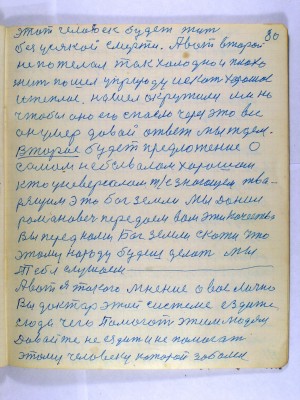 80
этот человек будет жит
без всякой смерти. А вот второй
не пожелал так холодно и плохо
жит пошел в природу искат хорошое
и теплое. нашел окружили им но
чтобы оно его спасло через это все
он умер давай ответ мы ждем.
Второе будет предложение о
самом небывалом хорошом
кто универсалом т/е знающем тва-
рящим это бог земли Мы Данил
романович передаем вам эти качества
Вы перед нами Бог земли скажи что
этому народу будеш делат мы
Тебя слушаем
А вот я такого мнение о вас лично
Вы доктар этой системе ездите
сюды чего Помогат этим людям
Давайте не ездити не помогат
этому человеку которой заболел